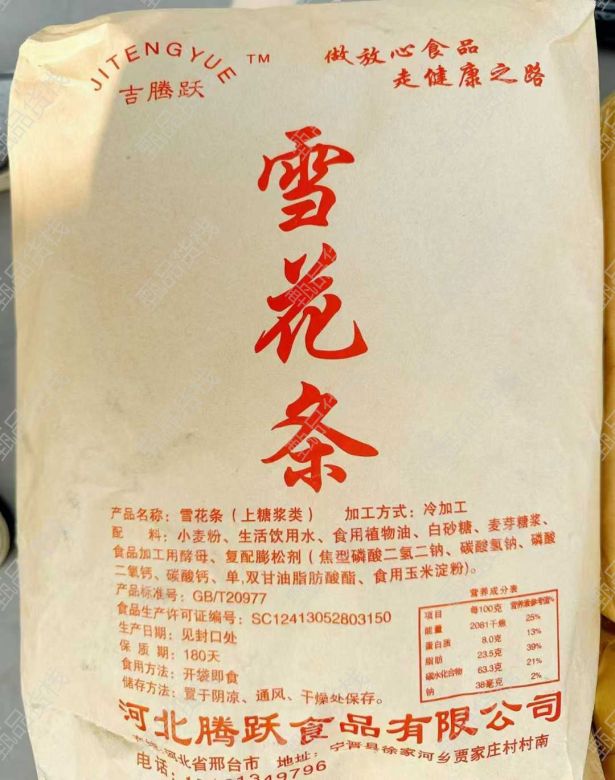 JITENGYUE TM
吉腾跃
做放心食品
走健康之路
雪花条
产品名称：雪花条（上糖浆类） 加工方式：冷加工
配 料：小麦粉、生活饮用水、食用植物油、白砂糖、麦芽糖浆、
食品加工用酵母、复配膨松剂（焦型磷酸二氢二钠、碳酸氢钠、磷酸
二氢钙、碳酸钙、单,双甘油脂肪酸酯、食用玉米淀粉)。
产品标准号：GB/T20977
食品生产许可证编号：SC12413052803150
生产日期：见封口处
保质期：180天
食用方法：开袋即食
储存方法：置于阴凉、通风、干燥处保存。
营养成分表
项目 每100克 营养素参考值%
能量 2081千焦 25%
蛋白质 8.0克 13%
脂肪 23.5克 39%
碳水化合物 63.3克 21%
钠 38毫克 2%
河北腾跃食品有限公司
河北省邢台市 地址：宁晋县徐家河乡贾家庄村村南
电话：1349796
甄品货栈